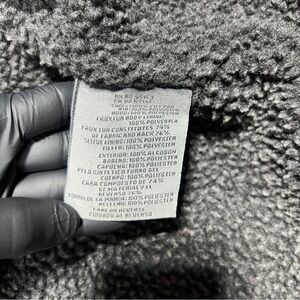 SHELL: 100% COTTON
RIB: 100% POLYESTER
HOOD: 100% POLYESTER
FAUX FUR BODY LINING:
100% POLYESTER
FAUX FUR CONSTITUTES 74%
OF FABRIC AND BACK 26%
SLEEVE LINING: 100% POLYESTER
FILLER: 100% POLYESTER
EXTERIOR: 100% ALGODON
BARENO: 100% POLIESTER
CAPUCHA: 100% POLIESTER
PELO SINTETICO FORRO DEL
CUERPO: 100% POLIESTER
CARA COMPUESTO DE 74%
DE MATERIAL Y EL
REVERSO 26%
FORRO DE LA MANGA: 100% POLIESTER
RELLENO: 100% POLIESTER
CARE ON REVERSE
CUIDADO AL REVERSO